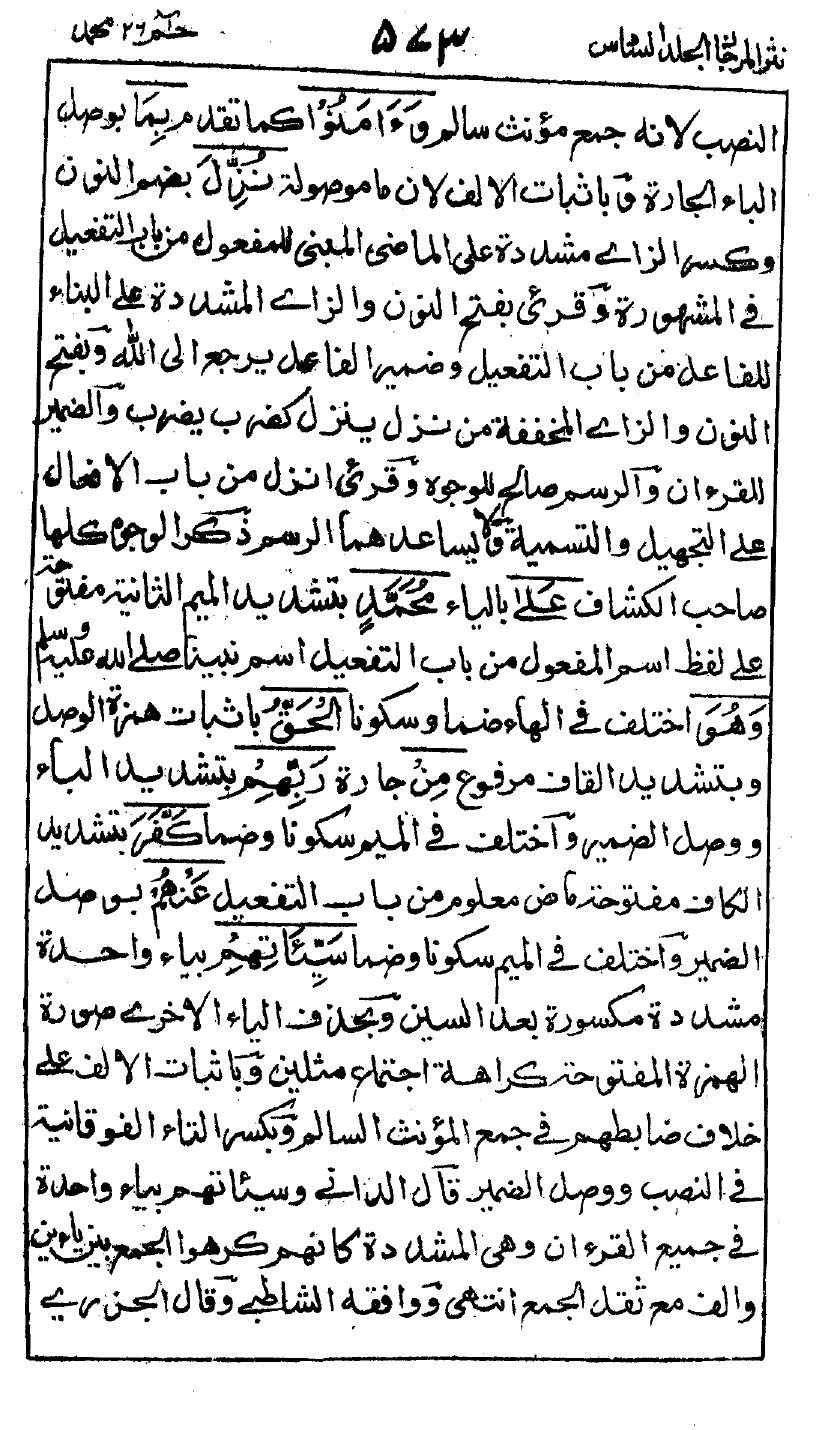 نثر المرجان الجلد السادس
۵۷۳
حٰم ٢٦ محمد
النصب لانه جمع مؤنث سالم وَءَامَنُوْا كما تقدم بِمَا بوصل
الباء الجارة وباثبات الالف لان ما موصولة نُزِّلَ بضم النون
وكسر الزاے مشددة على الماضى المبنى للمفعول من باب التفعيل
فے المشهورة وقرئ بفتح النون والزاے المشددة على البناء
للفاعل من باب التفعيل وضمير الفاعل يرجع الى الله وبفتح
النون والزاے المخففة من نزل ينزل كضرب يضرب والضمير
للقرءان والرسم صالح للوجوه وقرئ انزل من باب الافعال
على التجهيل والتسمية ولا يساعدهما الرسم ذكر الوجوه كلها
صاحب الكشاف عَلٰى بالياء مُحَمَّدٍ بتشديد الميم الثانية مفتوحة
على لفظ اسم المفعول من باب التفعيل اسم نبينا صلے الله عليه وسلم
وَهُوَ اختلف فے الهاء ضما وسكونا الْحَقُّ باثبات همزة الوصل
وبتشديد القاف مرفوع مِنْ جارة رَبِّهِمْ بتشديد الباء
ووصل الضمير واختلف فے الميم سكونا وضما كَفَّرَ بتشديد
الكاف مفتوحة ماض معلوم من باب التفعيل عَنْهُمْ بوصل
الضمير واختلف فے الميم سكونا وضما سَيِّئَاتِهِمْ بياء واحدة
مشددة مكسورة بعد السين وبحذف الياء الاخرے صورة
الهمزة المفتوحة كراهة اجتماع مثلين وباثبات الالف على
خلاف ضابطهم فے جمع المؤنث السالم وبكسر التاء الفوقانية
فے النصب ووصل الضمير قال الدانے وسيئاتهم بياء واحدة
فے جميع القرءان وهى المشددة كانهم كرهوا الجمع بين ياءين
والف مع ثقل الجمع انتهى ووافقه الشاطبے وقال الجزرے